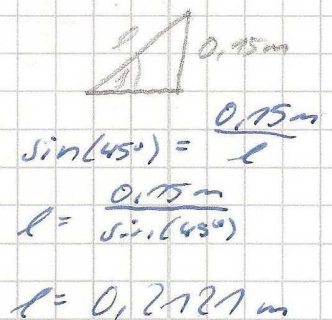 l 0,15m
sin(45°) = 0,15m / l
l = 0,15m / sin(45°)
l = 0,2121 m